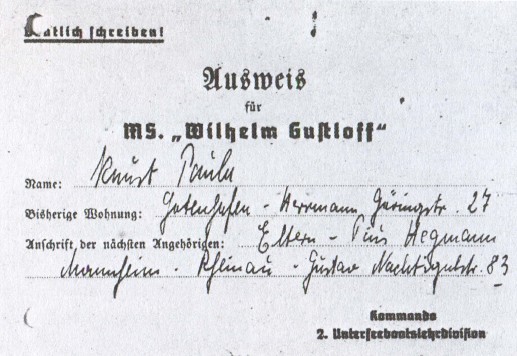 Deutlich schreiben!
Ausweis
für
MS. „Wilhelm Gustloff"
Name: Knust Paula
Bisherige Wohnung: Gotenhafen - Herrmann Göringstr. 27
Anschrift, der nächsten Angehörigen: Eltern - Pius Hegmann
Mannheim - Rheinau - Gustav Nachtigalstr. 83
Kommando
2. Unterseebootslehrdivision